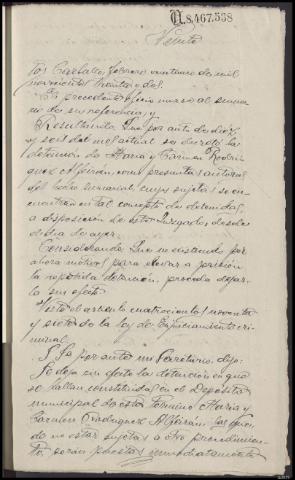 U.8,467,538
Veinte
Carballo, Febrero veintiuno de mil
novecientos treinta y dos.
El precedente oficio únase al suma-
rio de su referencia, y
Resultando: Que por auto de diez
y seis del mes actual se decretó la
detención de María y Carmen Rodrí-
guez como presuntas autoras
del hecho sumarial, cuyas sujetas se en-
cuentran en tal concepto de detenidas,
a disposición de este Juzgado, desde
el día de ayer.
Considerando: Que no existiendo por
ahora motivos para elevar a prisión
la repetida detención, procede dejar-
la sin efecto.
Visto el artículo cuatrocientos noventa
y siete de la Ley de Enjuiciamiento cri-
minal.
S. Sª por ante mí Secretario, dijo:
Se deja sin efecto la detención en que
se hallan constituidas en el Depósito
municipal de este Término María y
Carmen Rodríguez las que,
de no estar sujetas a otro procedimien-
to, serán puestas inmediatamente